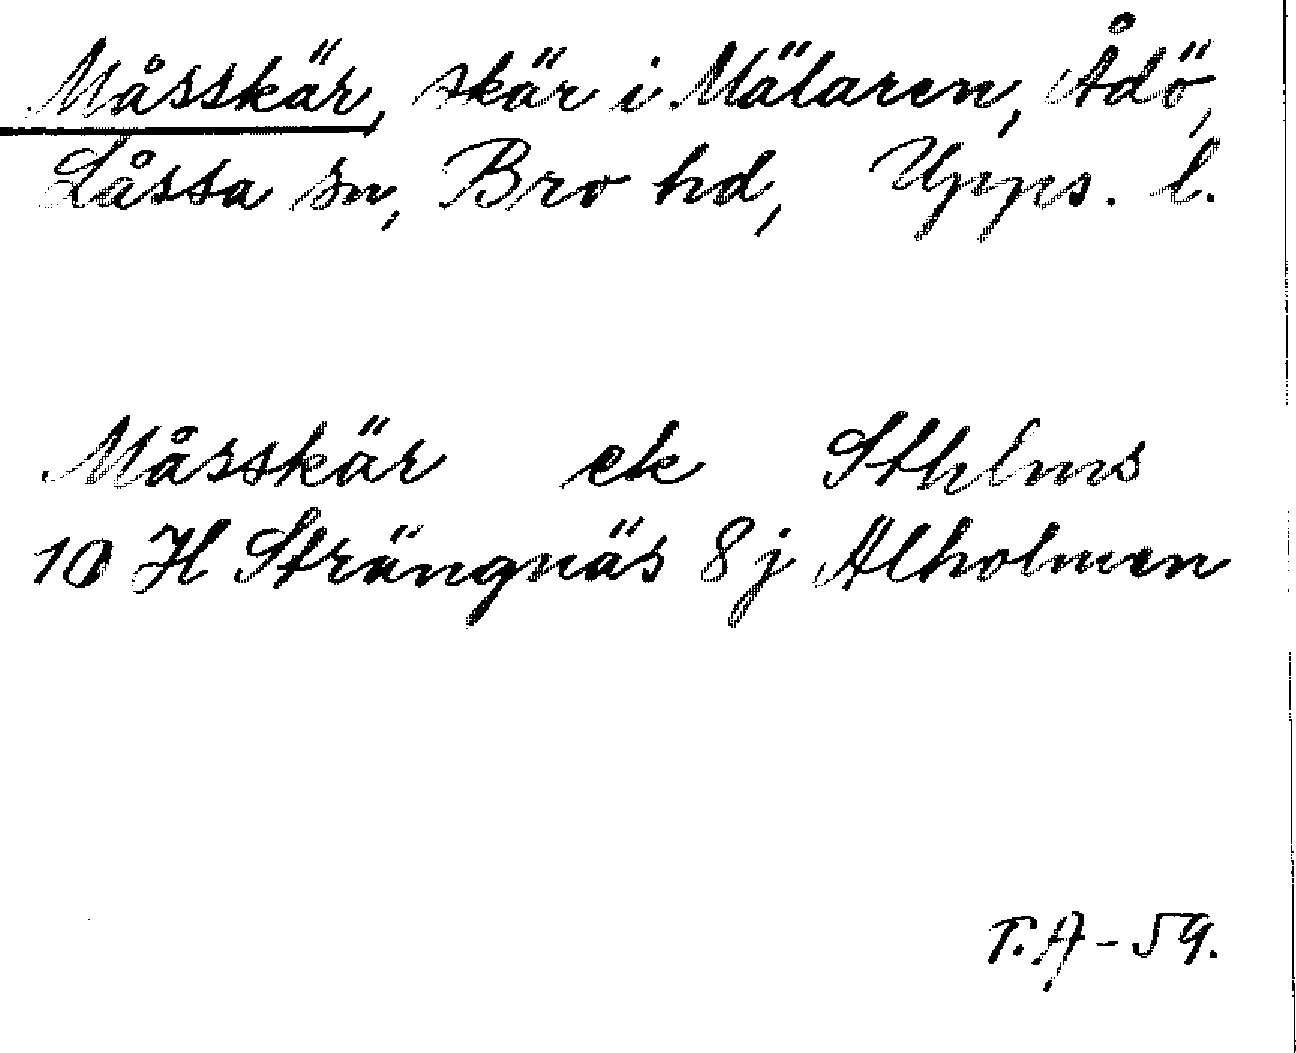 Måsskär, skär i Mälaren, Ådö,
Låssa sn, Bro hd, Upps. l.
Måsskär ek Sthlms
10 H Strängnäs 8j Alholmen
T.A-59.